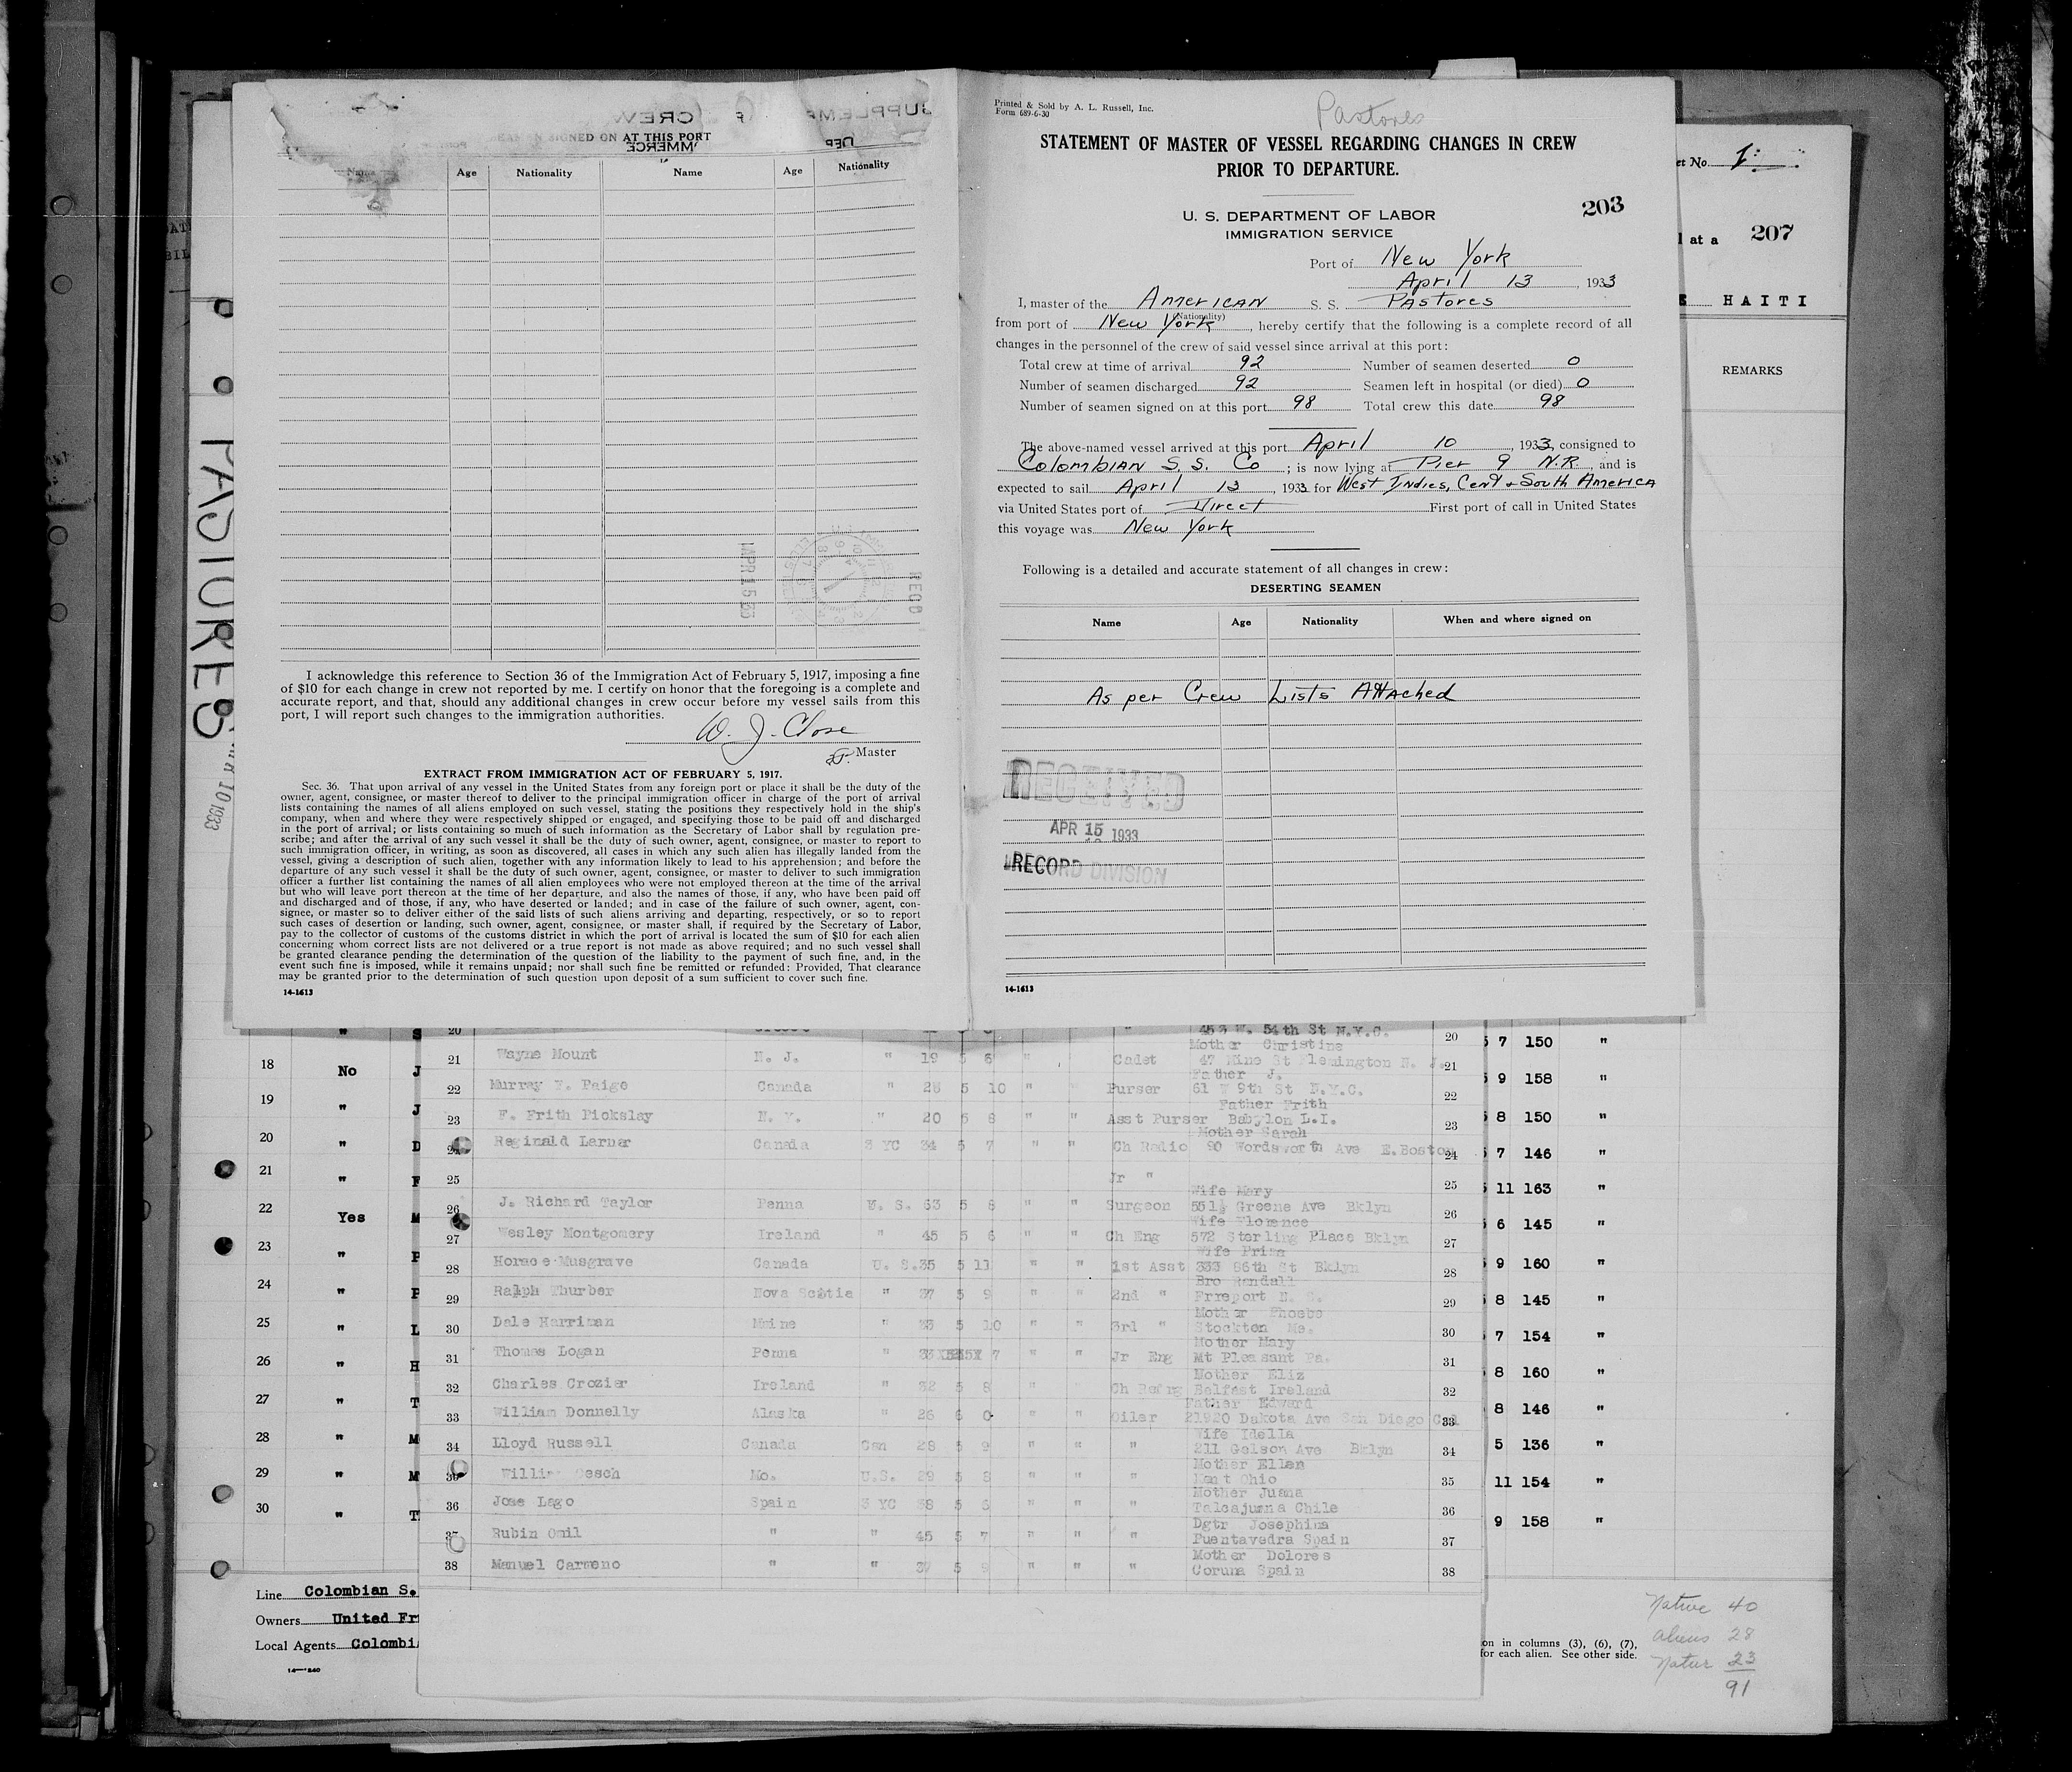 SEAMEN SIGNED ON AT THIS PORT
Name Age Nationality Name Age Nationality
APR 15 33
REC'D
I acknowledge this reference to Section 36 of the Immigration Act of February 5, 1917, imposing a fine
of $10 for each change in crew not reported by me. I certify on honor that the foregoing is a complete and
accurate report, and that, should any additional changes in crew occur before my vessel sails from this
port, I will report such changes to the immigration authorities.
W. J. Close
Master
EXTRACT FROM IMMIGRATION ACT OF FEBRUARY 5, 1917.
Sec. 36. That upon arrival of any vessel in the United States from any foreign port or place it shall be the duty of the
owner, agent, consignee, or master thereof to deliver to the principal immigration officer in charge of the port of arrival
lists containing the names of all aliens employed on such vessel, stating the positions they respectively hold in the ship's
company, when and where they were respectively shipped or engaged, and specifying those to be paid off and discharged
in the port of arrival; or lists containing so much of such information as the Secretary of Labor shall by regulation pre-
scribe; and after the arrival of any such vessel it shall be the duty of such owner, agent, consignee, or master to report to
such immigration officer, in writing, as soon as discovered, all cases in which any such alien has illegally landed from the
vessel, giving a description of such alien, together with any information likely to lead to his apprehension; and before the
departure of any such vessel it shall be the duty of such owner, agent, consignee, or master to deliver to such immigration
officer a further list containing the names of all alien employees who were not employed thereon at the time of the arrival
but who will leave port thereon at the time of her departure, and also the names of those, if any, who have been paid off
and discharged and of those, if any, who have deserted or landed; and in case of the failure of such owner, agent, con-
signee, or master so to deliver either of the said lists of such aliens arriving and departing, respectively, or so to report
such cases of desertion or landing, such owner, agent, consignee, or master shall, if required by the Secretary of Labor,
pay to the collector of customs of the customs district in which the port of arrival is located the sum of $10 for each alien
concerning whom correct lists are not delivered or a true report is not made as above required; and no such vessel shall
be granted clearance pending the determination of the question of the liability to the payment of such fine, and, in the
event such fine is imposed, while it remains unpaid; nor shall such fine be remitted or refunded: Provided, That clearance
may be granted prior to the determination of such question upon deposit of a sum sufficient to cover such fine.
14-1613
Printed & Sold by A. L. Russell, Inc.
Form 689-6-30
Pastores
STATEMENT OF MASTER OF VESSEL REGARDING CHANGES IN CREW
PRIOR TO DEPARTURE.
U. S. DEPARTMENT OF LABOR
IMMIGRATION SERVICE
203
Port of New York
April 13, 1933
I, master of the American S. S. Pastores
(Nationality)
from port of New York, hereby certify that the following is a complete record of all
changes in the personnel of the crew of said vessel since arrival at this port:
Total crew at time of arrival 92 Number of seamen deserted 0
Number of seamen discharged 92 Seamen left in hospital (or died) 0
Number of seamen signed on at this port 98 Total crew this date 98
The above-named vessel arrived at this port April 10, 1933, consigned to
Colombian S. S. Co; is now lying at Pier 9 N.R., and is
expected to sail April 13, 1933 for West Indies, Cent & South America
via United States port of Direct First port of call in United States
this voyage was New York
Following is a detailed and accurate statement of all changes in crew:
DESERTING SEAMEN
Name Age Nationality When and where signed on
As per Crew Lists Attached
RECEIVED
APR 15 1933
RECORD DIVISION
14-1613
et No. 1
at a 207
HAITI
REMARKS
PASTORES
10 1933
20 453 W. 54th St N.Y.C. 20
Mother Christine
21 Wayne Mount N. J. " 19 5 6 " Cadet 47 Mine St Flemington N. J. 21
Father J.
22 Murray F. Paige Canada " 28 5 10 " " Purser 61 W 9th St N.Y.C. 22
Father Frith
23 F. Frith Pickslay N. Y. " 20 5 8 " " Asst Purser Babylon L.I. 23
Mother Sarah
24 Reginald Larner Canada 3 YC 34 5 7 " " Ch Radio 90 Wordsworth Ave E.Boston 24
25 Jr " 25
Wife Mary
26 J. Richard Taylor Penna U. S. 63 5 8 " " Surgeon 551½ Greene Ave Bklyn 26
Wife Florence
27 Wesley Montgomery Ireland " 45 5 6 " " Ch Eng 572 Sterling Place Bklyn 27
Wife Prima
28 Horace Musgrave Canada U. S. 35 5 11 " " 1st Asst 333 86th St Bklyn 28
Bro Randall
29 Ralph Thurber Nova Scotia " 37 5 9 " " 2nd " Freeport N. S. 29
Mother Phoebe
30 Dale Harriman Maine " 33 5 10 " " 3rd " Stockton Me. 30
Mother Mary
31 Thomas Logan Penna " 33 7 " " Jr Eng Mt Pleasant Pa. 31
Mother Eliz
32 Charles Crozier Ireland " 32 5 8 " " Ch Refrg Belfast Ireland 32
Father Edward
33 William Donnelly Alaska " 26 6 0 " " Oiler 21920 Dakota Ave San Diego Cal 33
Wife Idella
34 Lloyd Russell Canada Can 28 5 9 " " " 211 Gelson Ave Bklyn 34
Mother Ellen
William Oesch Mo. U.S. 29 5 8 " " " Kent Ohio 35
Mother Juana
36 Jose Lago Spain 3 YC 38 5 6 " " " Talcajuana Chile 36
Dgtr Josephina
37 Rubin Omil " " 45 5 7 " " " Puentavedra Spain 37
Mother Dolores
38 Manuel Carmeno " " 37 5 9 " " " Coruna Spain 38
18 No J
19 " J
20 " D
21 " F
22 Yes M
23 " P
24 " P
25 " L
26 " H
27 " T
28 " M
29 " M
30 " T
7 150 "
9 158 "
8 150 "
7 146 "
11 163 "
6 145 "
9 160 "
8 145 "
7 154 "
8 160 "
8 146 "
5 136 "
11 154 "
9 158 "
Line Colombian S.
Owners United Fr
Local Agents Colombi
on in columns (3), (6), (7),
for each alien. See other side.
Native 40
aliens 28
Natur 23
91